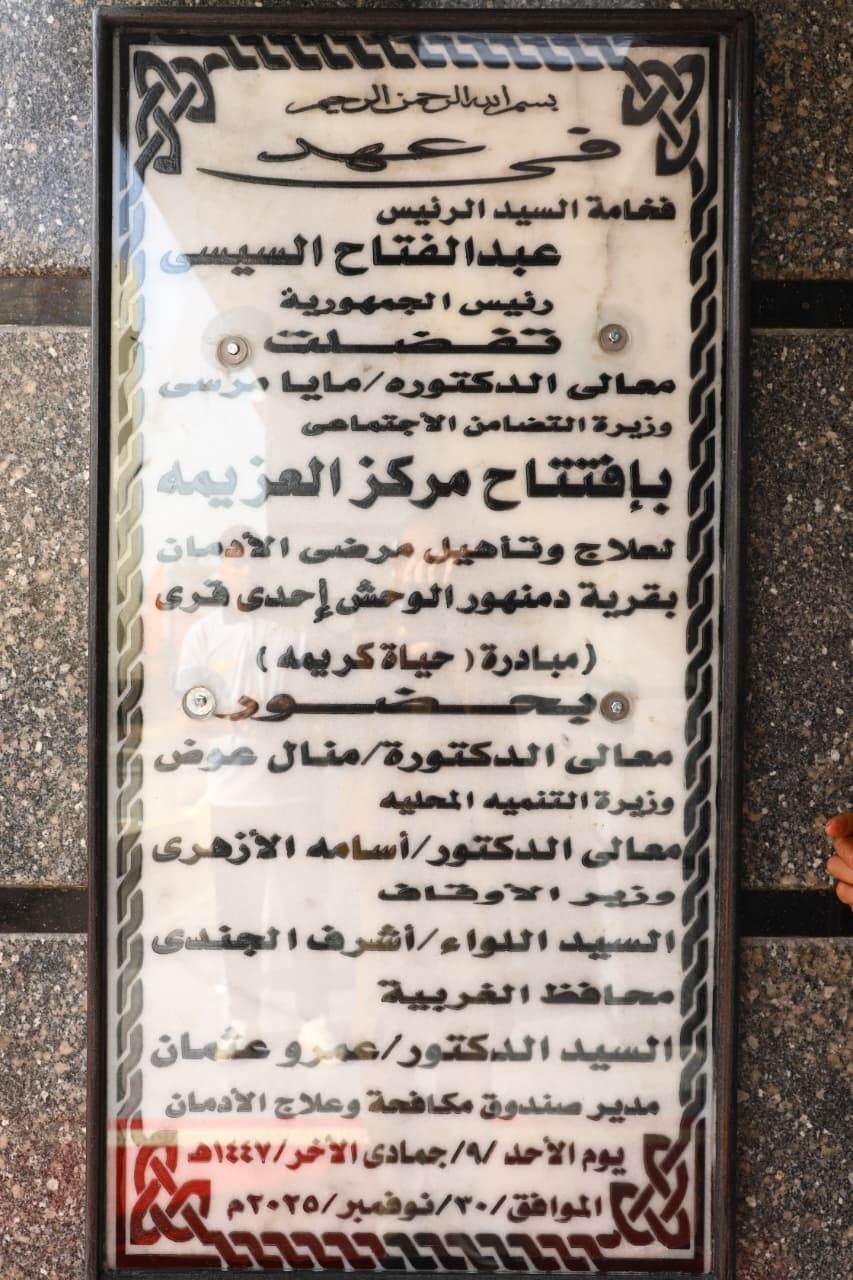 بسم الله الرحمن الرحيم
فى عهد
فخامة السيد الرئيس
عبدالفتاح السيسى
رئيس الجمهورية
تفضلت
معالى الدكتوره/مايا مرسى
وزيرة التضامن الأجتماعى
بإفتتاح مركز العزيمه
لعلاج وتأهيل مرضى الأدمان
بقرية دمنهور الوحش إحدى قرى
(مبادرة ( حياة كريمه )
بحضور
معالى الدكتورة/منال عوض
وزيرة التنميه المحليه
معالى الدكتور/أسامه الأزهرى
وزير الأوقاف
السيد اللواء/أشرف الجندى
محافظ الغربية
السيد الدكتور/عمرو عثمان
مدير صندوق مكافحة وعلاج الأدمان
يوم الأحد /٩/جمادى الأخر/١٤٤٧هـ
الموافق/٣٠/نوفمبر/٢٠٢٥م